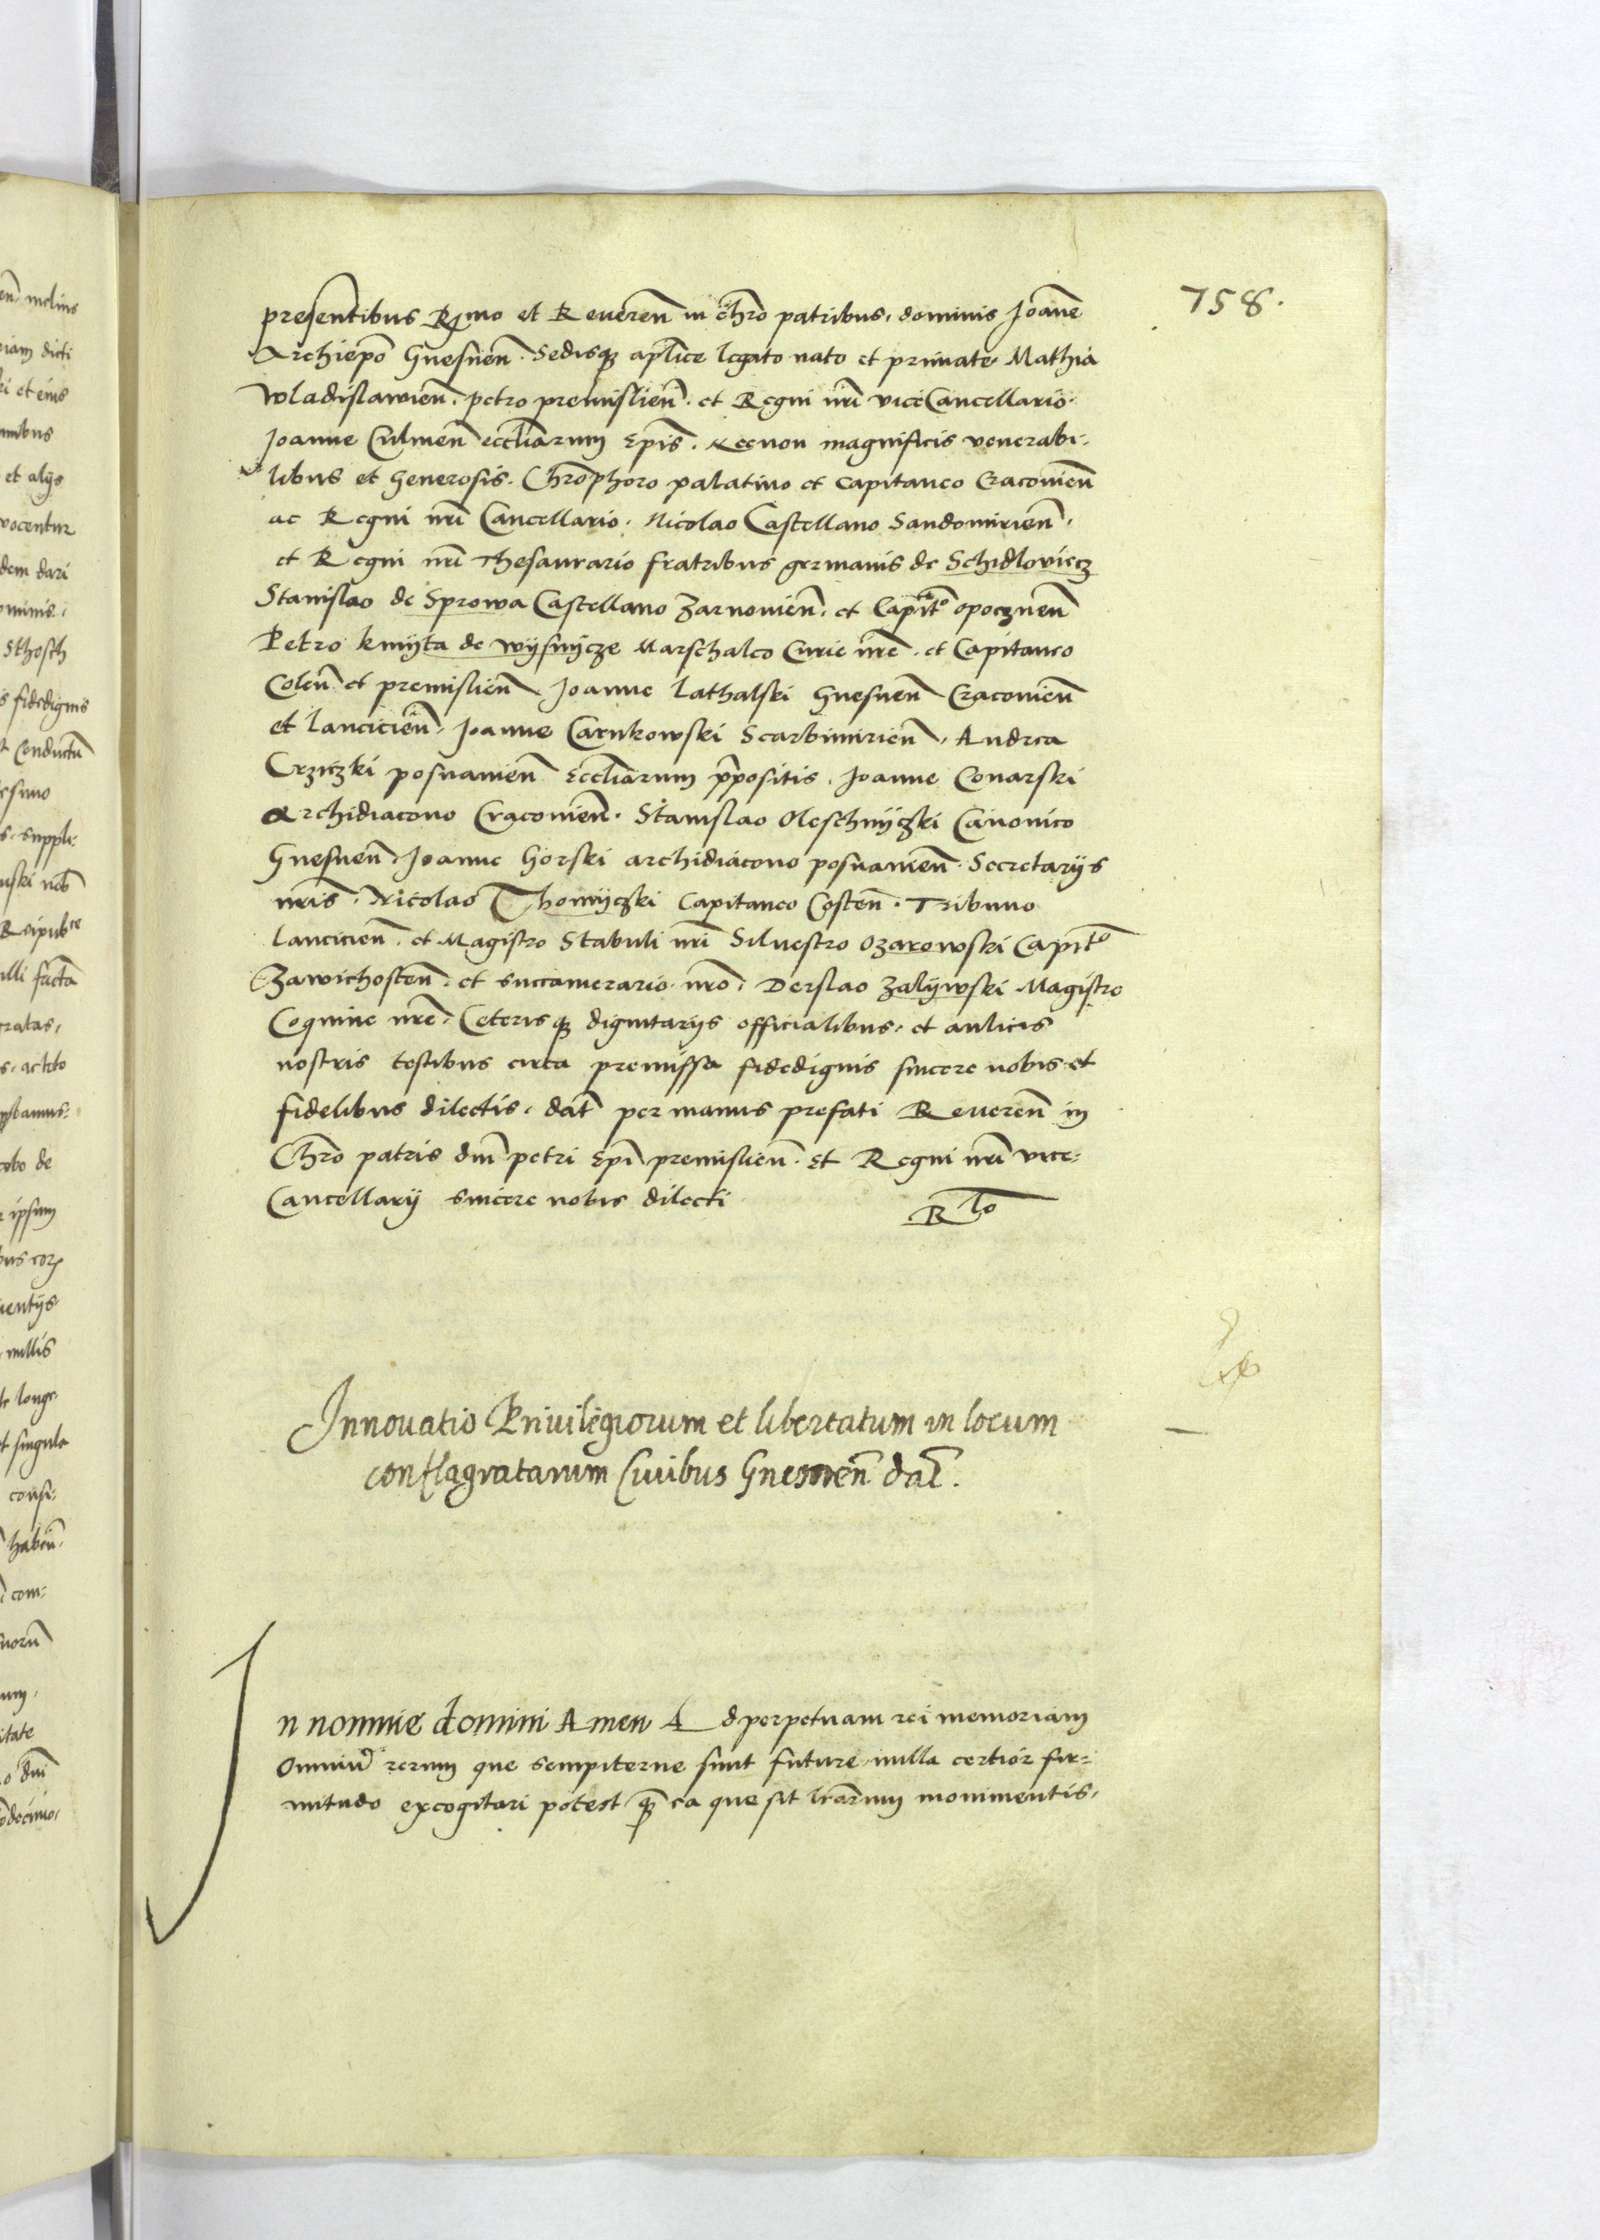 758.
presentibus Rmo et Reueren̄ in chr̄o patribus, dominis Joan̄e
Archiepō Gnesnen̄. Sedisq; apl̄ice legato nato et primate Mathia
wladislawien̄. petro premislien̄. et Regni nr̄i viceCancellario.
Joanne Culmen̄ eccl̄iarum Epīs. Necnon magnificis venerabi-
libus et Generosis. Chrōphoro palatino et capitaneo Cracouien̄
ac Regni nr̄i Cancellario. Nicolao Castellano Sandomirien̄.
et Regni nr̄i Thesaurario fratribus germanis de Schidloviecz
Stanislao de Sprowa Castellano Zarnouien̄. et Capit̄o opocznen̄
Petro kmÿta de wÿsnÿcze Marschalco Curie nr̄e. et Capitaneo
Colen̄ et premislien̄ Joanne Lathalski Gnesnen̄ Cracouien̄
et Lancicien̄. Joanne Carnkowski Scarbimirien̄, Andrea
Crziczki posnanien̄ Eccl̄iarum p̄positis. Joanne Conarski
Archidiacono Cracouien̄. Stanislao Oleschnÿczki Canonico
Gnesnen̄. Joanne Gorski archidiacono posnanien̄. Secretarÿs
nr̄is. Nicolao Thomÿczki Capitaneo Costen̄. Tribuno
Lancicien̄. et Magistro Stabuli nr̄i Siluestro Ozarowski Capit̄o
Zawichosten̄. et succamerario nr̄o. Derslao Zalÿwski Magistro
Coquine nr̄e. Ceterisq; dignitarÿs officialibus. et aulicis
nostris testibus circa premissa fidedignis sincere nobis et
fidelibus dilectis. dat̄ per manus prefati Reueren̄ in
Chr̄o patris dn̄i petri Epī premislien̄. Et Regni nr̄i vice-
Cancellarÿ sincere nobis dilecti
R̄lo
Innouatio Priuilegiorum et libertatum in locum
conflagratarum Ciuibus Gnesnen̄ dat̄.
In nomine domini Amen Ad perpetuam rei memoriam
Omniū rerum que sempiterne sunt future nulla certior fir-
mitudo excogitari potest q̄ ea que sit lr̄arum monimentis.